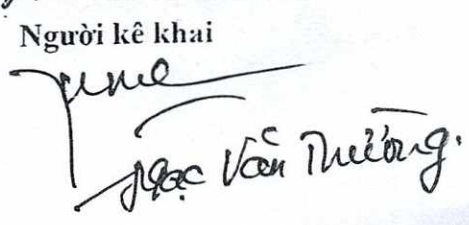 Người kê khai
Ngạc Văn Thưởng.